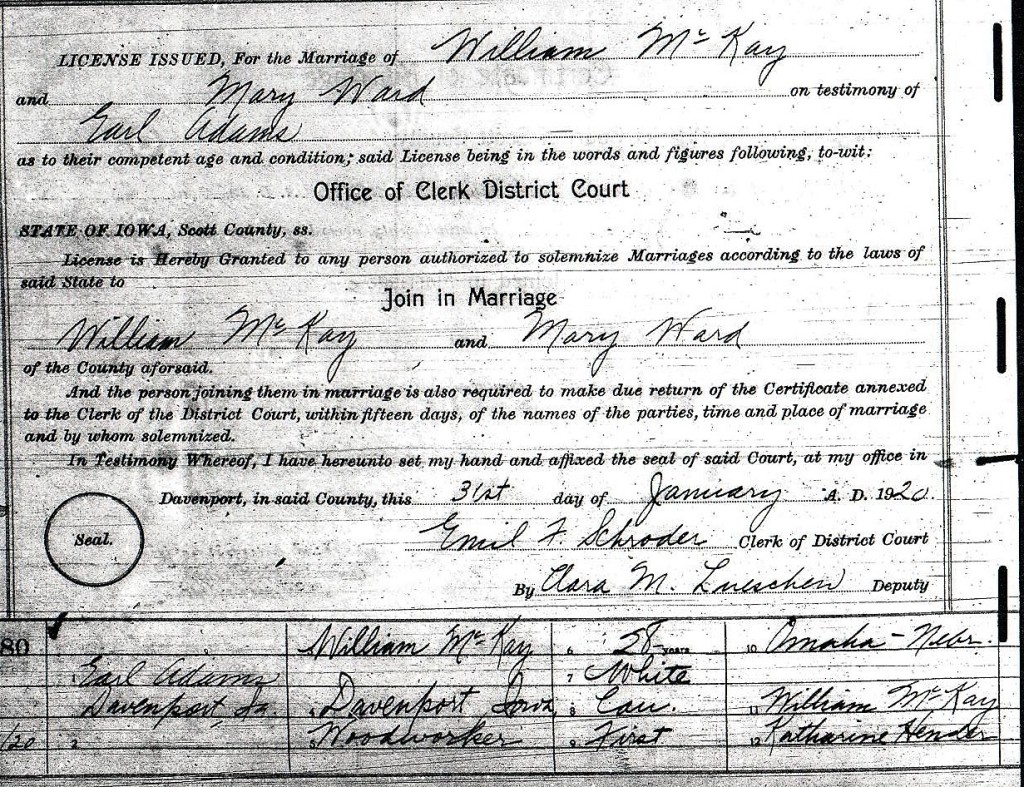 LICENSE ISSUED, For the Marriage of William McKay
and Mary Ward on testimony of
Earl Adams
as to their competent age and condition; said License being in the words and figures following, to-wit:
Office of Clerk District Court
STATE OF IOWA, Scott County, ss.
License is Hereby Granted to any person authorized to solemnize Marriages according to the laws of
said State to
Join in Marriage
William McKay and Mary Ward
of the County aforsaid.
And the person joining them in marriage is also required to make due return of the Certificate annexed
to the Clerk of the District Court, within fifteen days, of the names of the parties, time and place of marriage
and by whom solemnized.
In Testimony Whereof, I have hereunto set my hand and affixed the seal of said Court, at my office in
Davenport, in said County, this 31st day of January A. D. 1920.
Seal.
Emil F. Schroder Clerk of District Court
By Clara M. Lueschen Deputy
80 William McKay 6 28 years 10 Omaha - Nebr.
Earl Adams 7 White
Davenport, Ia. Davenport Iowa 8 Cau. 11 William McKay
/20 2 Woodworker 9 First 12 Katharine Hender